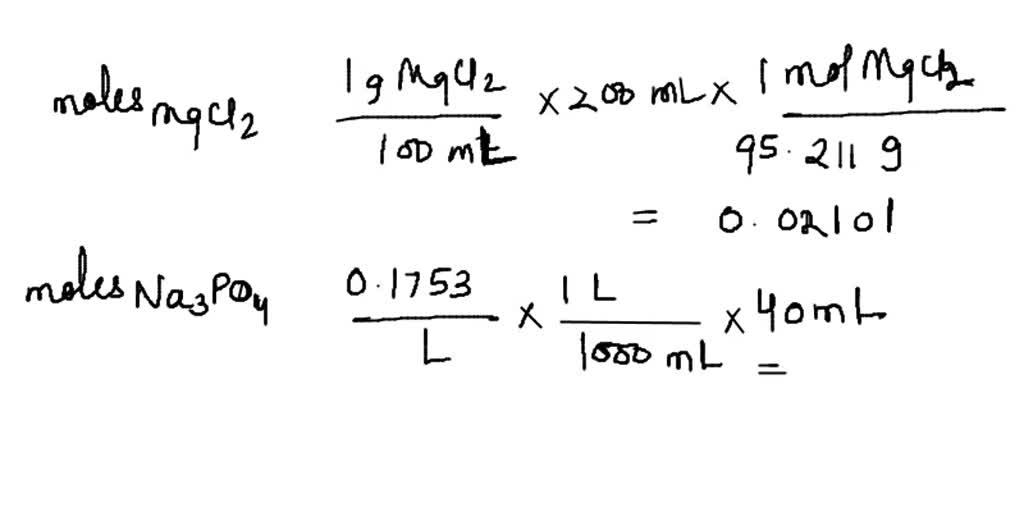 moles MgCl2 1g MgCl2 / 100 mL × 200 mL × 1 mol MgCl2 / 95.211 g
= 0.02101
moles Na3PO4 0.1753 / L × 1 L / 1000 mL × 40 mL
=